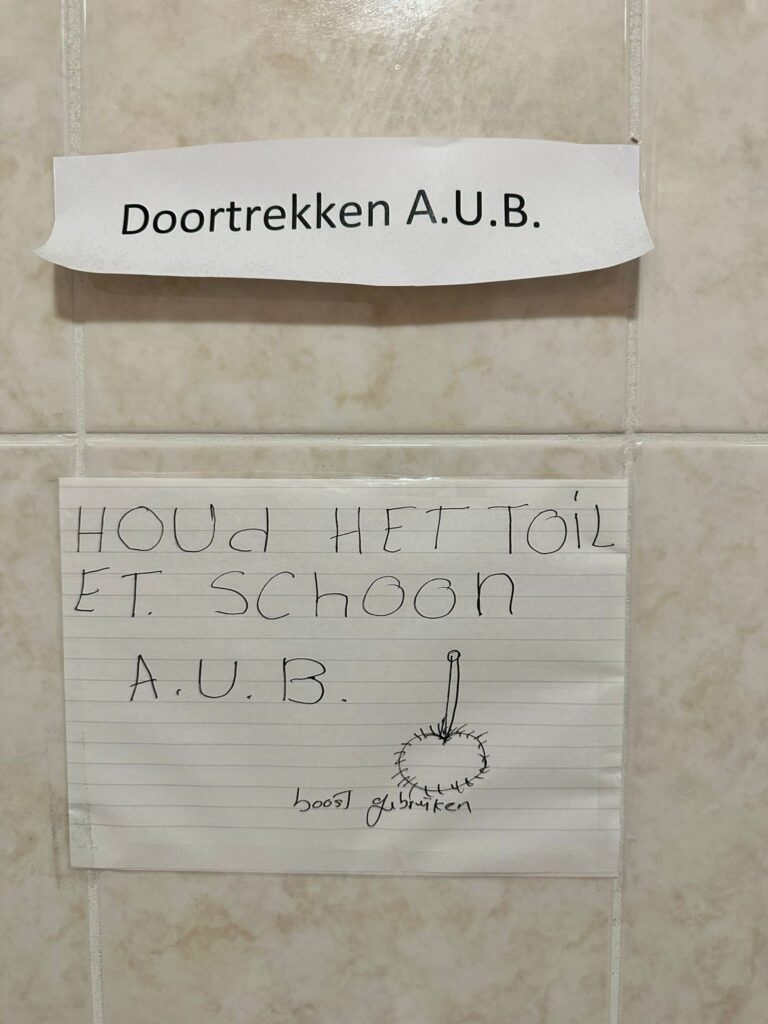 Doortrekken A.U.B.
HOUd HET TOiL
ET. SCHOON
A.U.B.
boost gebruiken